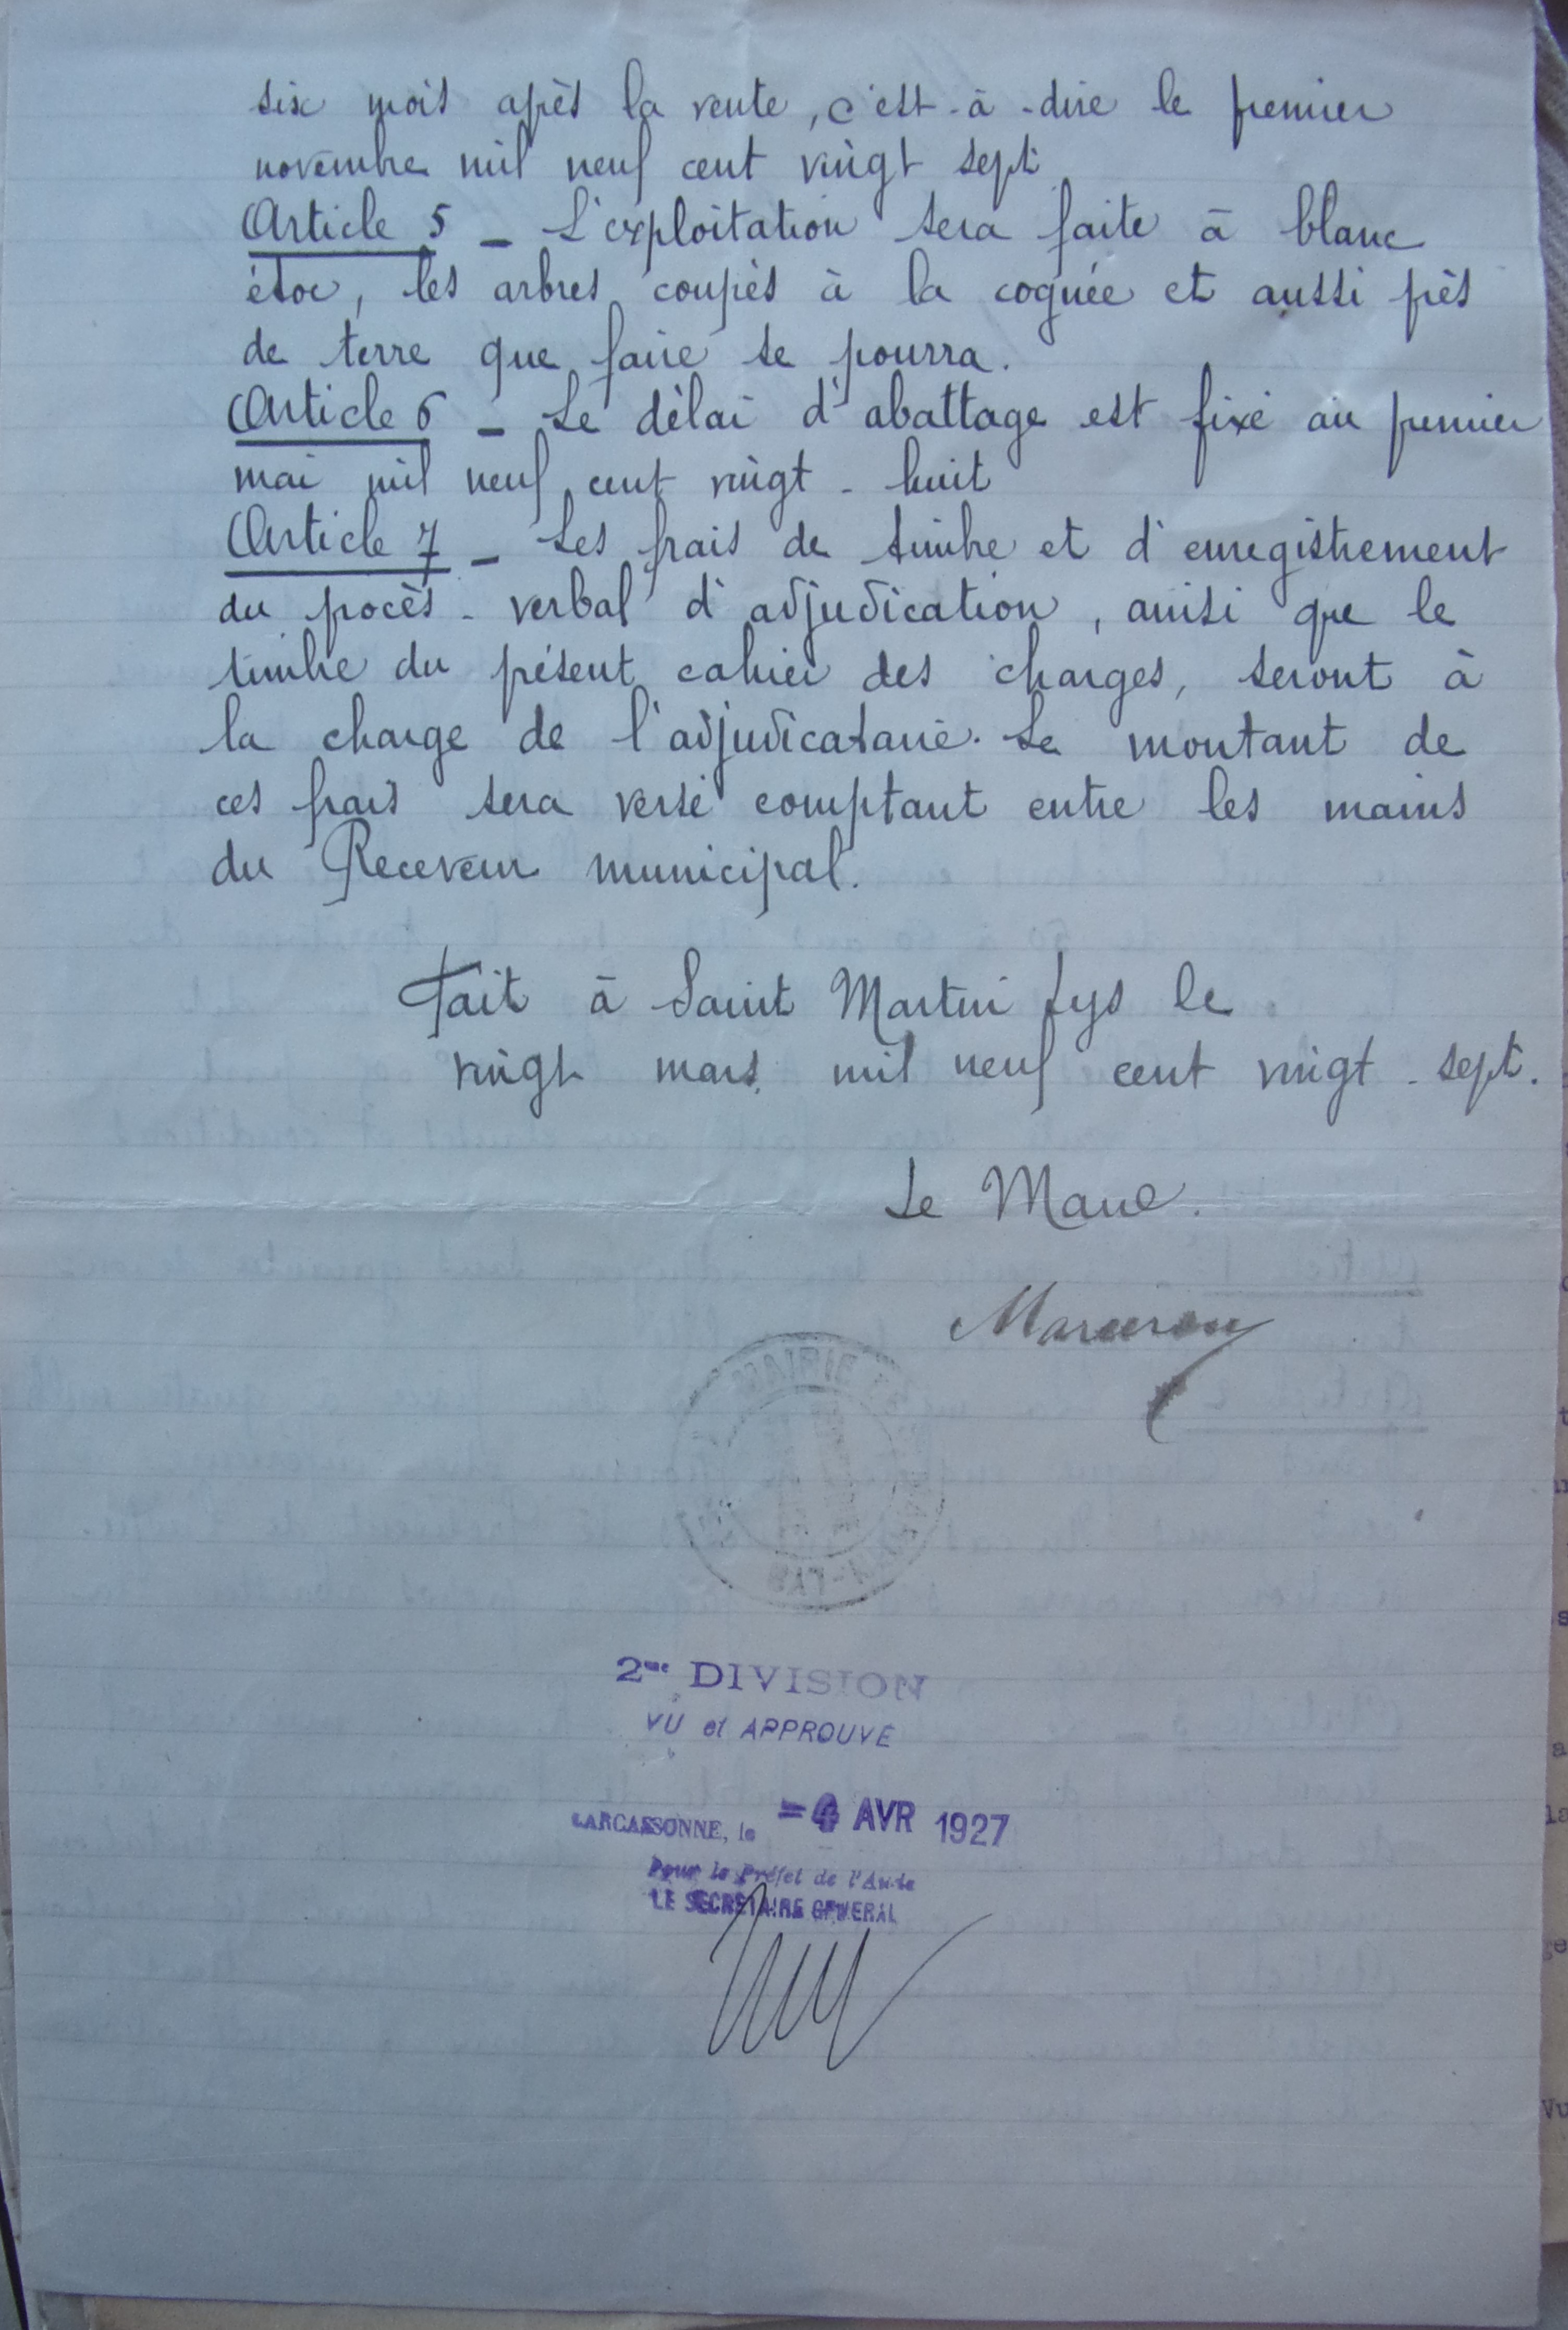 six mois après la vente, c'est-à-dire le premier
novembre mil neuf cent vingt sept
Article 5 - L'exploitation sera faite à blanc
étoc, les arbres coupés à la cognée et aussi près
de terre que faire se pourra.
Article 6 - Le délai d'abattage est fixé au premier
mai mil neuf cent vingt-huit
Article 7 - Les frais de timbre et d'enregistrement
du procès-verbal d'adjudication, ainsi que le
timbre du présent cahier des charges, seront à
la charge de l'adjudicataire. Le montant de
ces frais sera versé comptant entre les mains
du Receveur municipal.
Fait à Saint Martin Lys le
vingt mars mil neuf cent vingt-sept.
Le Maire.
MAIRIE
2me DIVISION
VU et APPROUVE
CARCASSONNE, le -4 AVR 1927
Pour le Préfet de l'Aude
LE SECRETAIRE GENERAL